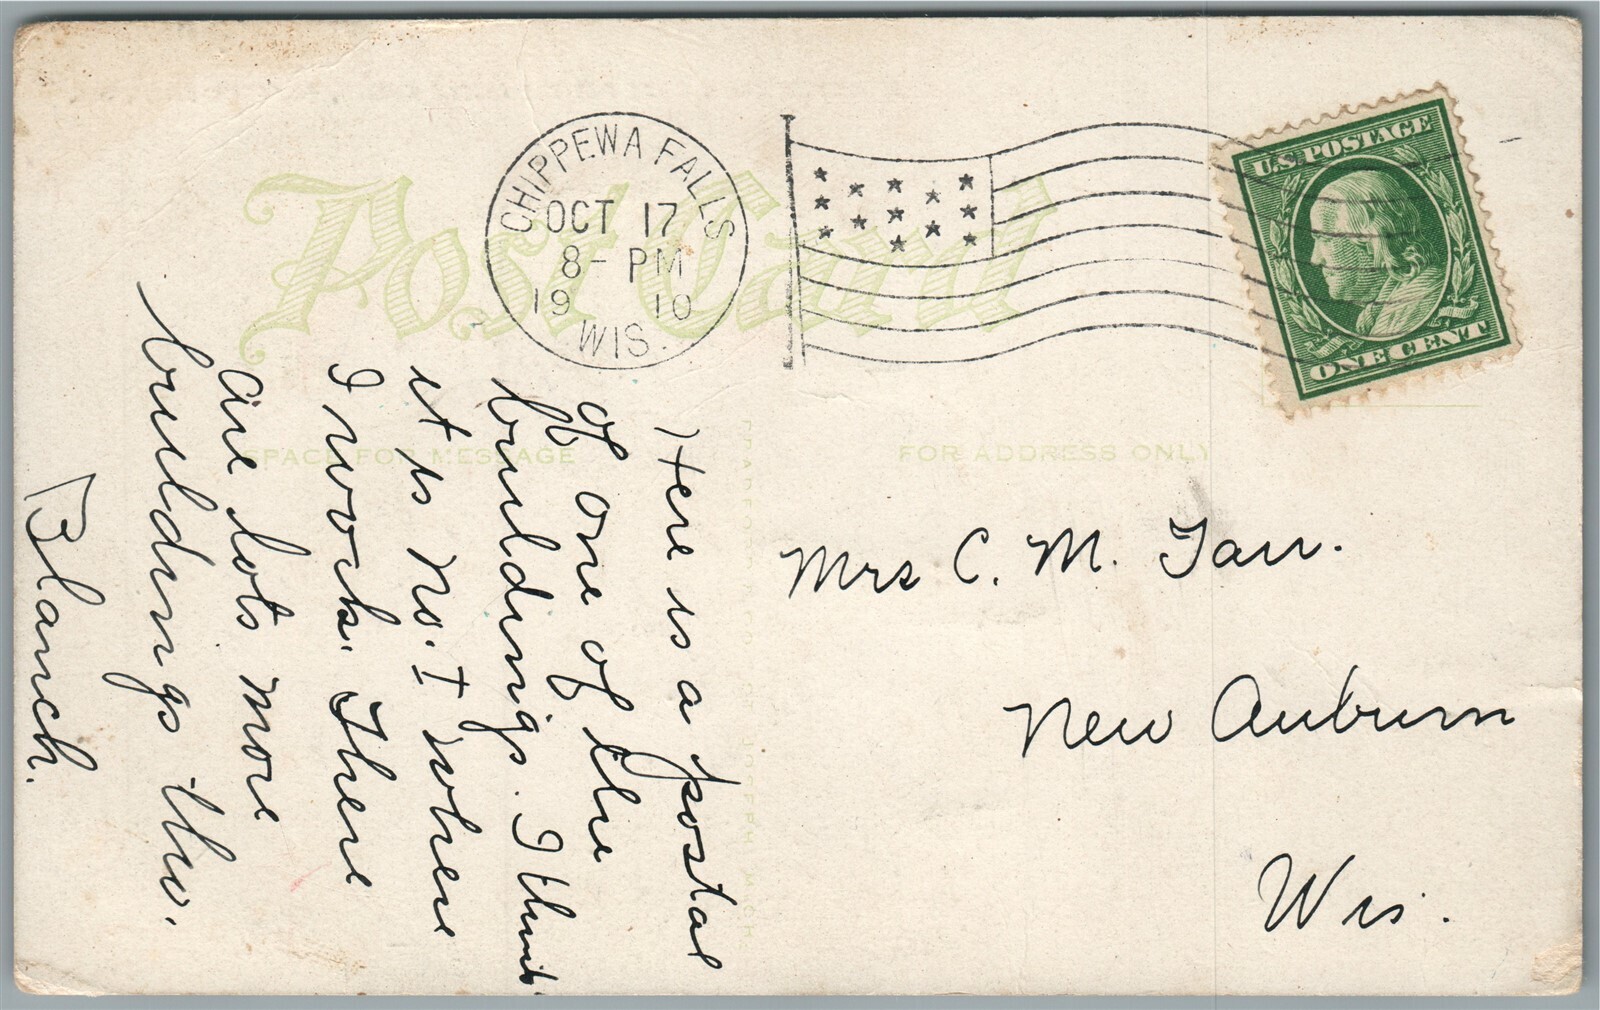 Post Card
CHIPPEWA FALLS
OCT 17
8- PM
1910
WIS.
U.S. POSTAGE
ONE CENT
SPACE FOR MESSAGE
FOR ADDRESS ONLY
Here is a postal
of one of the
buildings. I think
it is No. I where
I work. There
are lots more
buildings thu.
Blanch.
Mrs C. M. Tarr.
New Auburn
Wis.